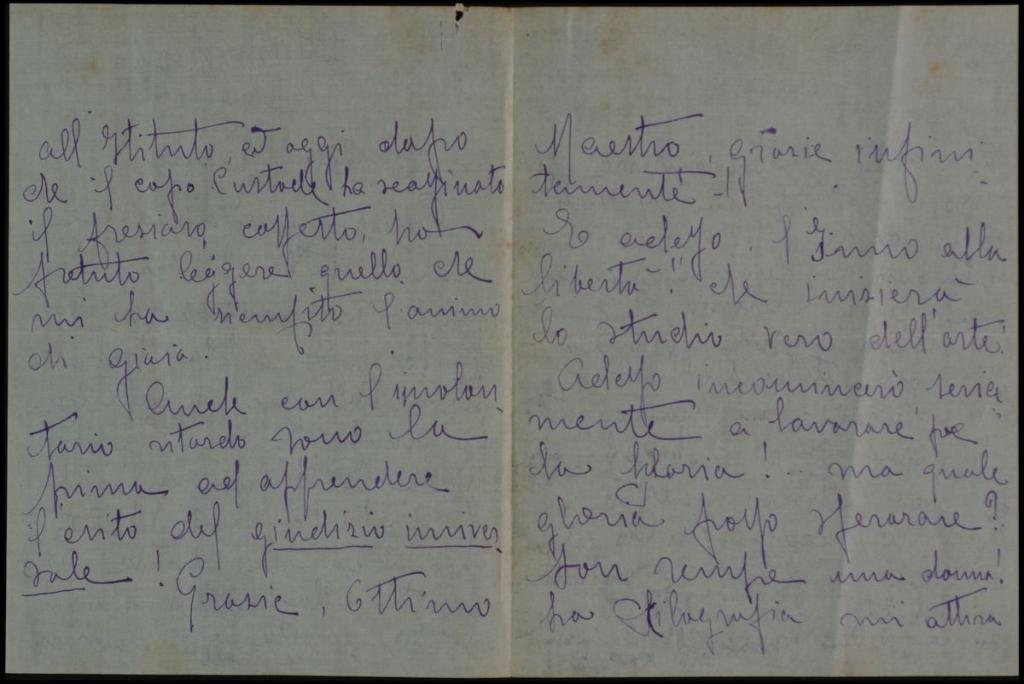 all'Istituto, ed oggi dopo
che il capo Custode ha scaginato
il prezioso coperto, ho
potuto leggere quello che
mi ha riempito l'animo
di gioia.
Anche con l'involon
tario ritardo sono la
prima ad apprendere
l'esito del giudizio univer
sale! Grazie, Ottimo
Maestro, grazie infini
tamente!
E adesso l'Inno alla
libertà!! che inizierà
lo studio vero dell'arte.
Adesso incomincerò seria
mente a lavorare per
la gloria!.. ma quale
gloria posso sperare?
Son sempre una donna!
La Xilografia mi attira